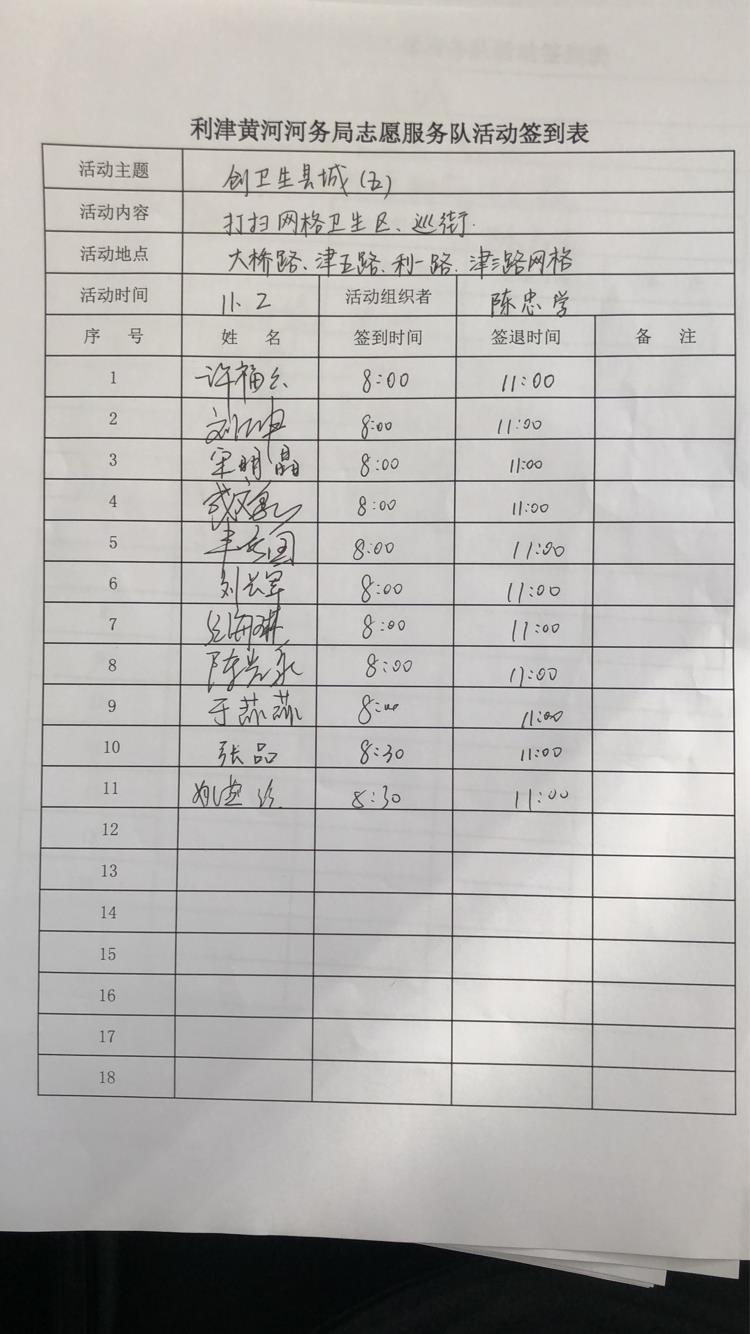 利津黄河河务局志愿服务队活动签到表
活动主题 创卫生县城(五)
活动内容 打扫网格卫生区、巡街.
活动地点 大桥路、津五路、利一路、津三路网格
活动时间 11.2 活动组织者 陈忠学
序 号 姓 名 签到时间 签退时间 备 注
1 8:00 11:00
2 刘坤 8:00 11:00
3 宋明晶 8:00 11:00
4 8:00 11:00
5 8:00 11:00
6 刘长军 8:00 11:00
7 8:00 11:00
8 8:00 11:00
9 于蕊蕊 8:00 11:00
10 张品 8:30 11:00
11 8:30 11:00
12
13
14
15
16
17
18